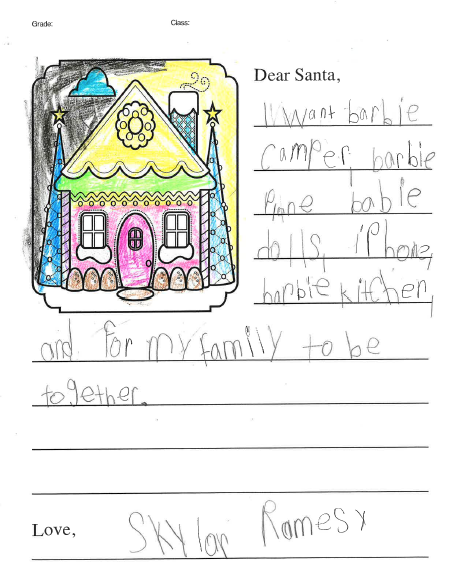 Grade: Class:
Dear Santa,
I want barbie
camper, barbie
plane babie
dolls, iPhone,
barbie kitchen,
and for my family to be
together.
Love, Skylar Ramesy